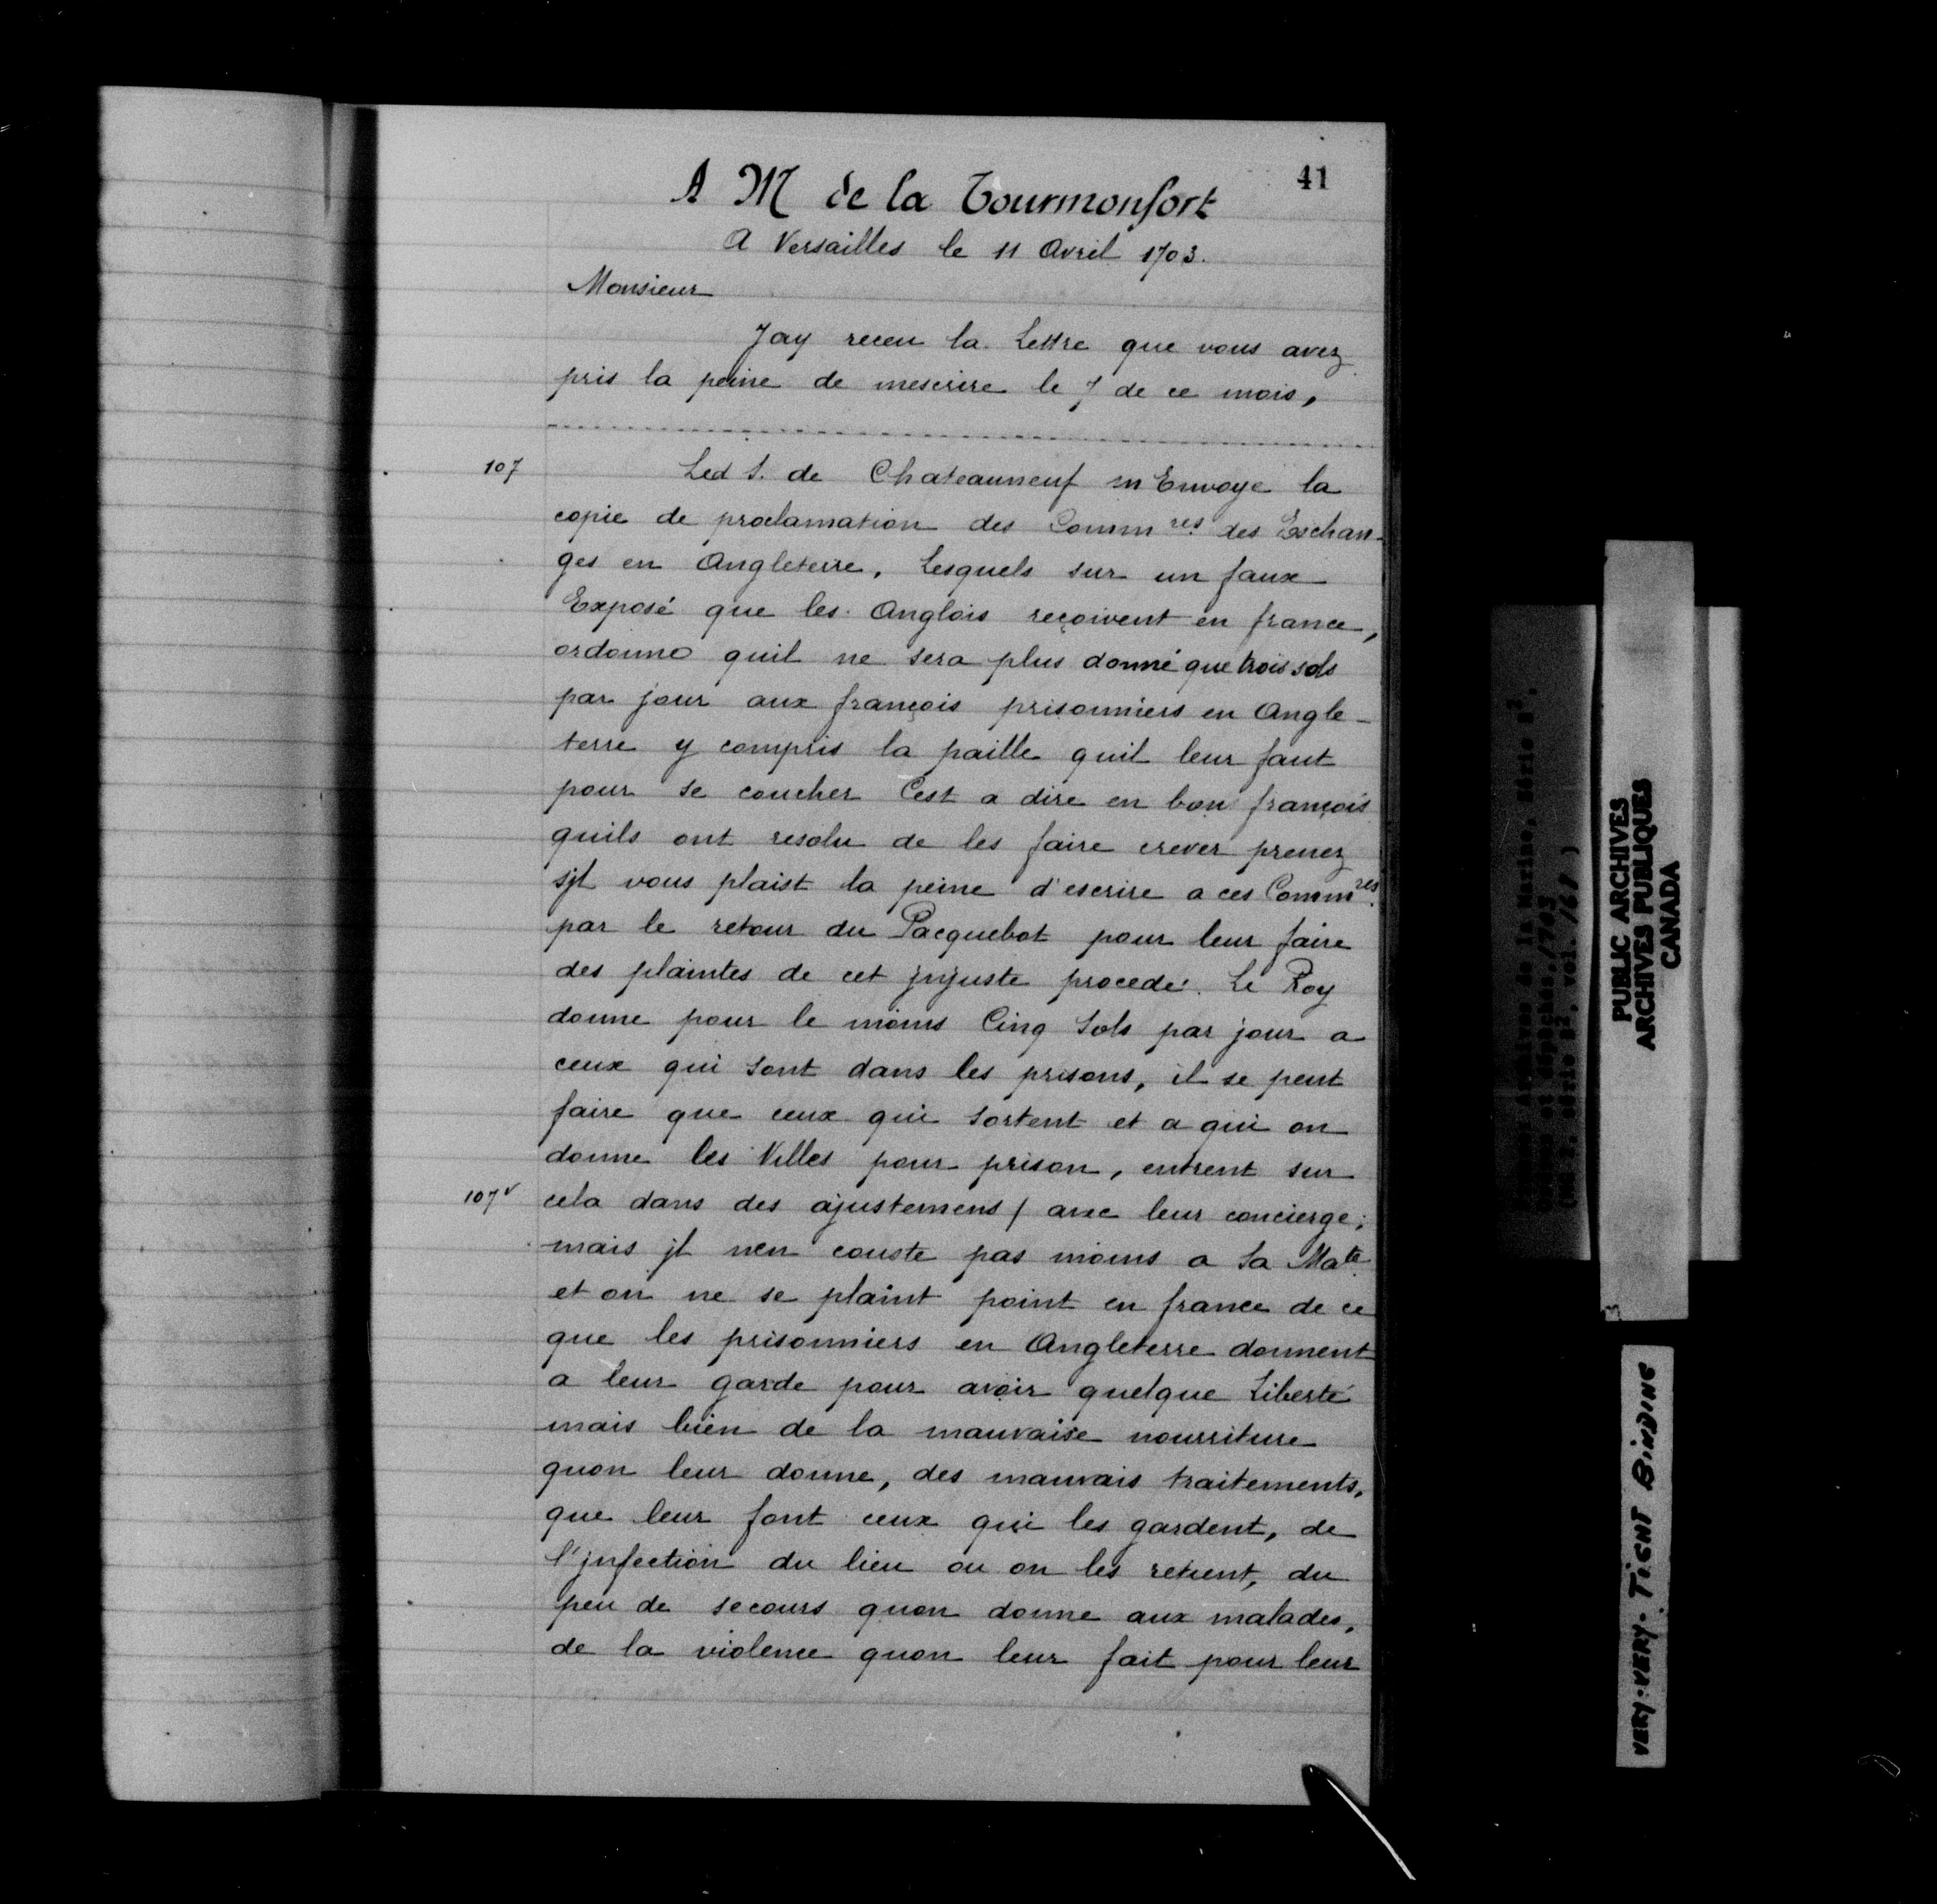 41
A M de la Tourmonfort
A Versailles le 11 Avril 1703.
Monsieur
Jay receu la Lettre que vous avez
pris la peine de mescrire le 7 de ce mois,
107
Led S. de Chateauneuf m Envoye la
copie de proclamation des Commres des Eschan-
ges en Angleterre, Lesquels sur un faux
Exposé que les Anglois reçoivent en france,
ordonne quil ne sera plus donné que trois sols
par jour aux françois prisonniers en Angle-
terre y compris la paille quil leur faut
pour se coucher Cest a dire en bon françois
quils ont resolu de les faire crever prenez
sjl vous plaist la peine d'escrire a ces Commres
par le retour du Pacquebot pour leur faire
des plaintes de cet jnjuste procedé. Le Roy
donne pour le moins Cinq Sols par jour a
ceux qui sont dans les prisons, il se peut
faire que ceux qui sortent et a qui on
donne les Villes pour prison, entrent sur
107v
cela dans des ajustemens / avec leur concierge;
mais jl nen couste pas moins a Sa Mate
et on ne se plaint point en france de ce
que les prisonniers en Angleterre donnent
a leur garde pour avoir quelque Liberté
mais bien de la mauvaise nourriture
quon leur donne, des mauvais traitements,
que leur font ceux qui les gardent, de
l'jnfection du lieu ou on les retient, du
peu de secours quon donne aux malades,
de la violence quon leur fait pour leur
PUBLIC ARCHIVES
ARCHIVES PUBLIQUES
CANADA
VERY-VERY-TIGHT BINDING